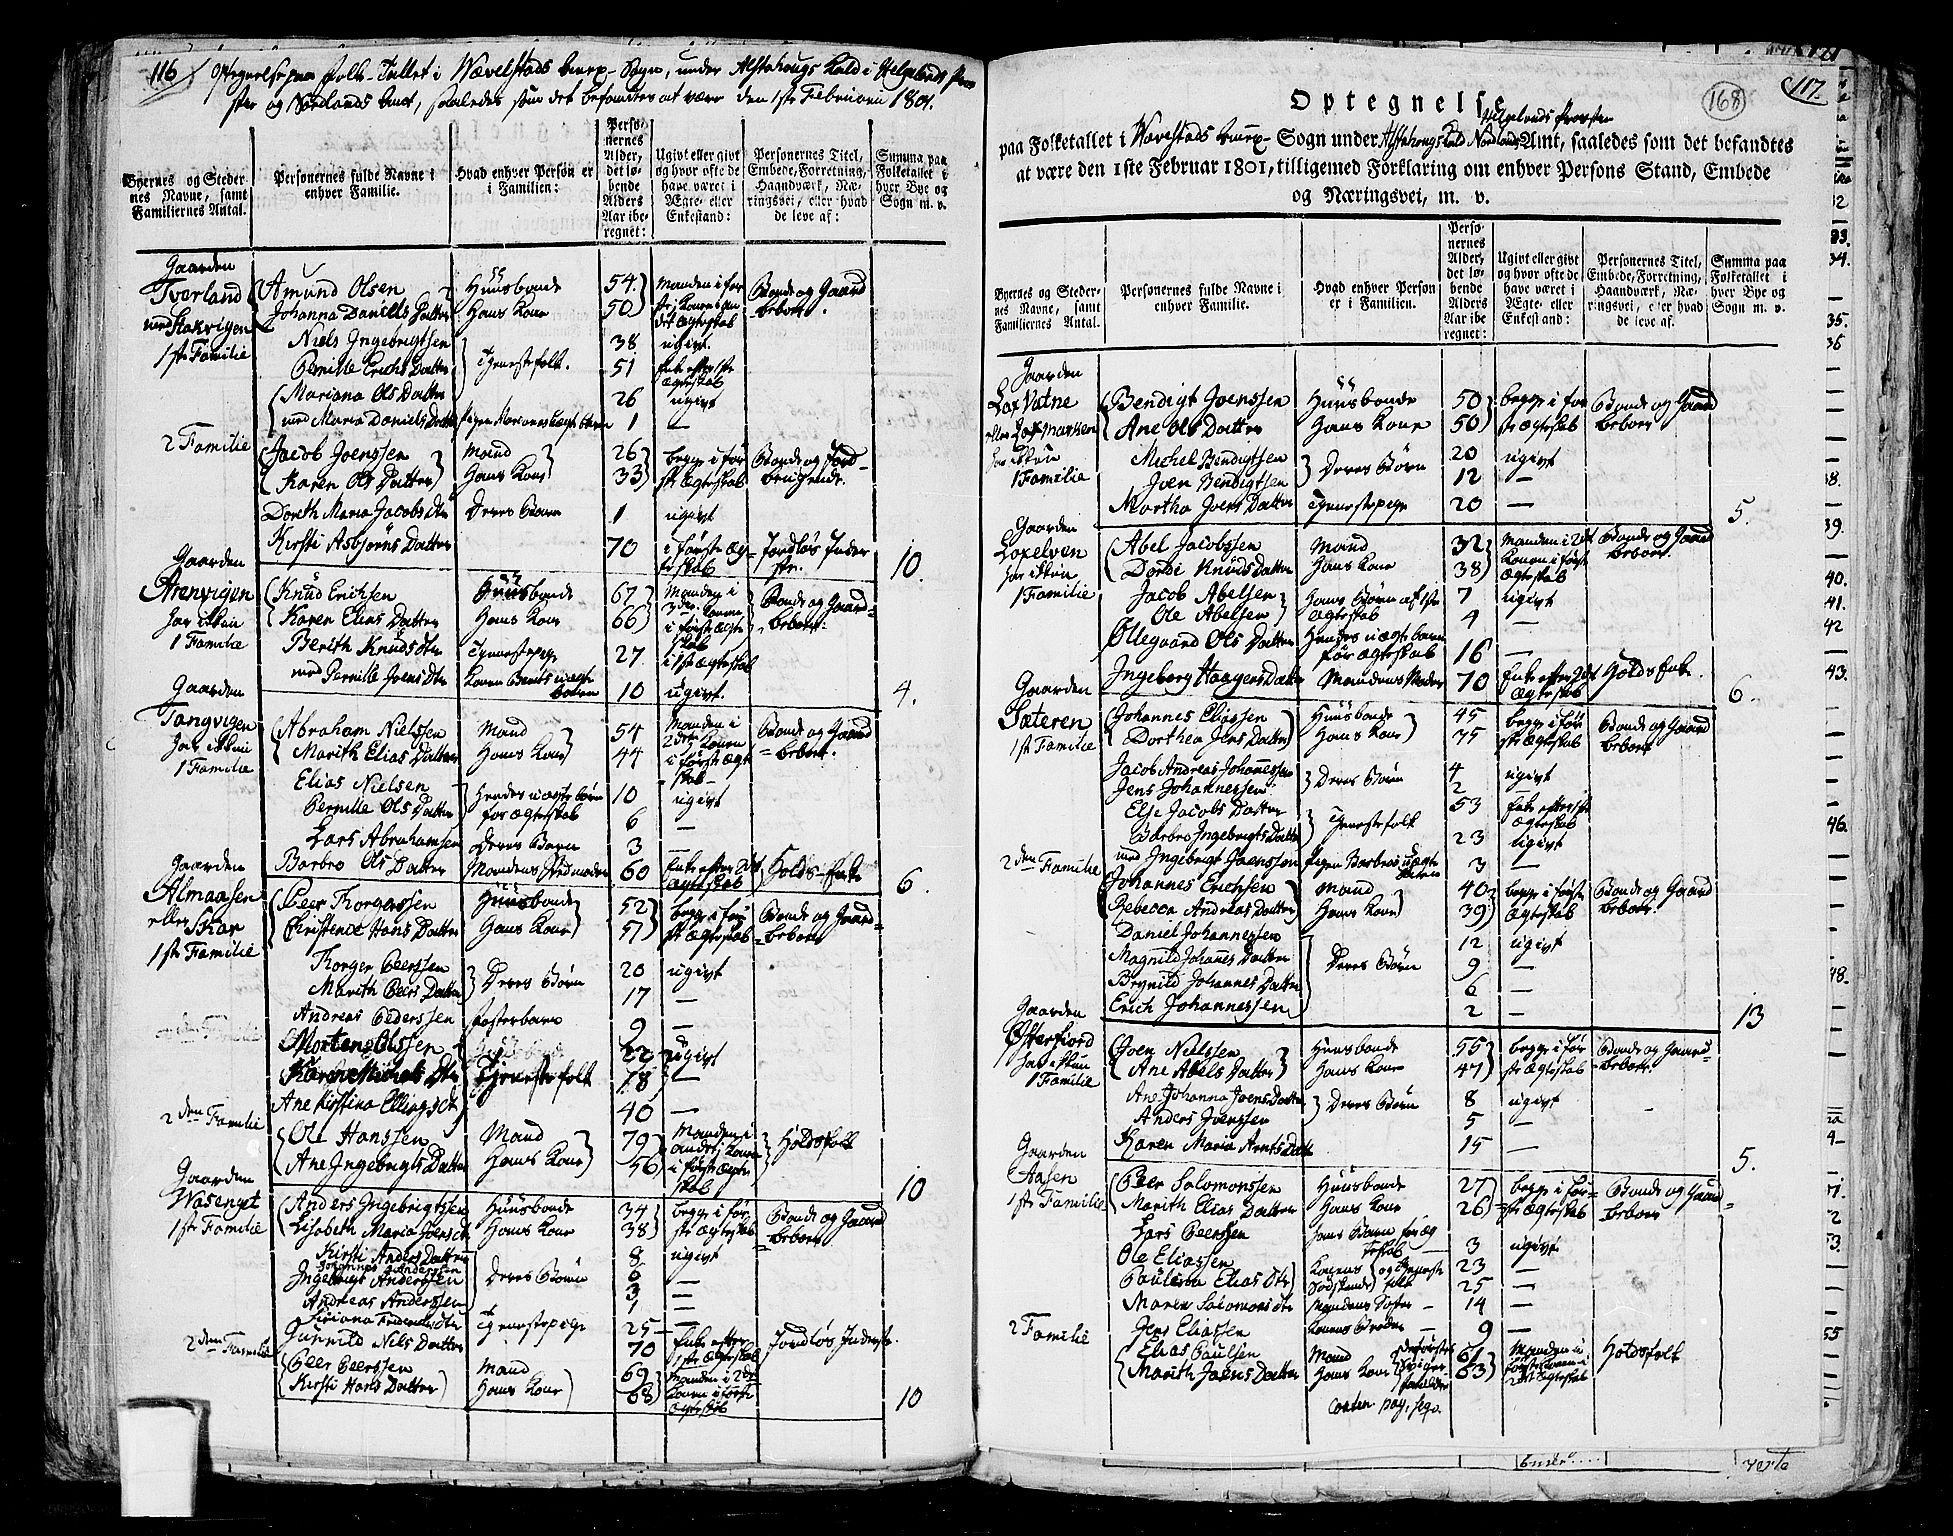 116
Optegnelse paa Folk-Tallet i Wævelstads Sogn, under Alstahougs Kald i Helgelands
og Nordlands Amt, saaledes som det befandtes at være den 1ste Februarii 1801.
Byernes og Stedernes Navne, samt Familiernes Antal.
Personernes fulde Navne i enhver Familie.
Hvad enhver Person er i Familien:
Personernes Alder, det løbende Alders Aar iberegnet:
Ugivt eller givt og hvor ofte de have været i Ægte- eller Enkestand:
Personernes Titel, Embede, Forretning, Haandværk, Næringsvei, eller hvad de leve af:
Summa paa Folketallet i hver Bye og Sogn m. v.
Gaarden
Tverland Amund Olsen Huusbonde 54 Manden i før Bonde og Gaard
Johanna Daniels Datter Hans Kone 50 beboer.
med Stokvigen Niels Ingebrigtsen 38 ugivt
1ste Familie Pernille Erichs Datter Tjenestefolk. 51 Enke efter 1ste Ægteskab
Mariana Ols Datter 26 ugivt
med Maria Daniels Datter 1 —
2 Familie Jacob Joenssen Mand 26 begge i før Bonde og Jord-
Karen Ols Datter Hans Kone 33 ste Ægteskab brugende.
Doreth Maria Jacobs Dtr Deres Barn 1 ugivt
Kirsti Asbjørns Datter 70 i første Æg- Jordløs Inder
teskab ste. 10.
Gaarden
Arenvigen Knud Erichsen Huusbonde 67 Manden i Bonde og Gaard-
har ikkun Karen Elias Datter Hans Kone 66 3die Konen beboer.
1 Familie Berith Knuds Dtr Tjenestepige 27 i 1ste Ægteskab
med Pernille Joens Dtr 10 ugivt. 4.
Gaarden
Tangvigen Abraham Nielssen Mand 54 Manden i Bonde og Gaard
har ikkun Marith Elias Datter Hans Kone 44 2det Konen beboer.
1 Familie i første Ægteskab
Elias Nielsen Hendes uægte børn 10 ugivt
Pernille Ols Datter før Ægteskab 6 —
Lars Abrahamsen Deres Barn 3 —
Barbro Ols Datter Mandens Stedmoder 60 Enke efter 2det Holds-Enke 6.
Gaarden
Almaasen Peer Torgassen Huusbonde 52 begge i før Bonde og Gaard-
eller Skar Christence Hans Datter Hans Kone 51 ste Ægteskab beboer
1ste Familie Torger Peerssen Deres Børn 20 ugivt
Marith Peers Datter 17 —
Andreas Pederssen Fosterbarn 9 —
Morten Olssen 22 ugivt
Karen Michels Dtr Tjenestefolk 18 —
Ane Kirstina Ellings dtr 40 —
2den Familie Ole Hanssen Mand 79 Manden i Holdsfolk
Ane Ingebrigts Datter Hans Kone 56 andet Konen i første Ægteskab 10
Gaarden
Wasenget Anders Ingebrigtsen Huusbonde 34 begge i før Bonde og Gaard
1ste Familie Lisabeth Maria Joens dt Hans Kone 38 ste Ægteskab beboer
Kirsti Anders Datter 8 ugivt
Johannes Anderssen
Ingebrigt Anderssen Deres Børn 6 —
3 —
Andreas Anderssen 1 —
Tjenestepige 25 —
Gunnild Nils Datter 70 Enke efter 1ste Ægteskab Jordløs Inderste.
2den Familie Peer Peerssen Mand 69 Manden i 2det
Kirsti Hans Datter Hans Kone 68 Konen i første Ægteskab 10
168
117.
Optegnelse
paa Folketallet i Wævelstads Sogn under Alstahougs Kald Helgelands Nordlands Amt, saaledes som det befandtes
at være den 1ste Februar 1801, tilligemed Forklaring om enhver Persons Stand, Embede
og Næringsvei, m. v.
Byernes og Stedernes Navne, samt Familiernes Antal.
Personernes fulde Navne i enhver Familie.
Hvad enhver Person er i Familien:
Personernes Alder, det løbende Alders Aar iberegnet:
Ugivt eller givt og hvor ofte de have været i Ægte- eller Enkestand:
Personernes Titel, Embede, Forretning, Haandværk, Næringsvei, eller hvad de leve af.
Summa paa Folketallet i hver Bye og Sogn m. v.
Gaarden
Lax Vatne Bendigt Joenssen Huusbonde 50 begge i før Bonde og Gaard
eller Laxmarken Ane Ols Datter Hans Kone 50 ste Ægteskab beboer
har ikkun Michel Bendigtsen Deres Børn 20 ugivt
1 Familie Joen Bendigtsen 12 —
Martha Joens Datter Tjenestepige 20 — 5.
Gaarden
Laxelven Abel Jacobssen Mand 32 Manden i 2det Bonde og Gaard
har ikkun Dordi Knuds Datter Hans Kone 38 Konen i første Ægteskab beboer.
1 Familie Jacob Abelsen Hans Børn af 1ste 7 ugivt
Ole Abelsen Ægteskab 4 —
Ollegaard Ols Datter Hendes uægte barn før Ægteskab 16 —
Ingeborg Haagens Datter Mandens Moder 70 Enke efter 2det Ægteskab Holds Enke. 6.
Gaarden
Sæteren Johannes Eliassen Huusbonde 45 begge i før Bonde og Gaard
1ste Familie Dorthea Jens Datter Hans Kone 35 ste Ægteskab beboer
Jacob Andreas Johannessen Deres Børn 4 ugivt
Jens Johannessen 2 —
Else Jacobs Datter Tjenestefolk 53 Enke efter 1ste Ægteskab
Barbro Ingebrigts Datter 23 ugivt
med Ingebrigt Joenssen Pigen Barbros uægte 3 —
2den Familie Johannes Erichsen Mand 40 begge i første Bonde og Gaard
Rebecca Andreas Datter Hans Kone 39 Ægteskab beboer.
Daniel Johannessen 12 ugivt
Magnild Johannes Datter Deres Børn 9 —
Brynild Johannes Datter 6 —
Erich Johannessen 2 — 13
Gaarden
Østerfiord Joen Nielssen Huusbonde 55 begge i før Bonde og Gaard-
har ikkun Ane Abels Datter Hans Kone 47 ste Ægteskab beboer.
1 Familie Ane Johanna Joens Datter Deres Børn 8 ugivt
Anders Joenssen 5 —
Karen Maria Arnts Datter 15 — 5.
Gaarden
Aasen Peer Salomonssen Huusbonde 27 begge i før- Bonde og Gaard
1ste Familie Marith Elias Datter Hans Kone 26 ste Ægteskab beboer
Lars Peerssen Hans Barn før Ægteskab 3 ugivt
Ole Eliassen Konens og Tjeneste 23 —
Paulina Elias Dtr Sødskende folk 25 —
Maren Salomons dtr Mandens Søster 14 —
Jens Eliassen Konens Broder 9 —
2 Familie Elias Paulsen Mand 61 Manden i Holdsfolk
Marith Joens Datter Hans Kone 63 første Konen i 2det Ægteskab
verte